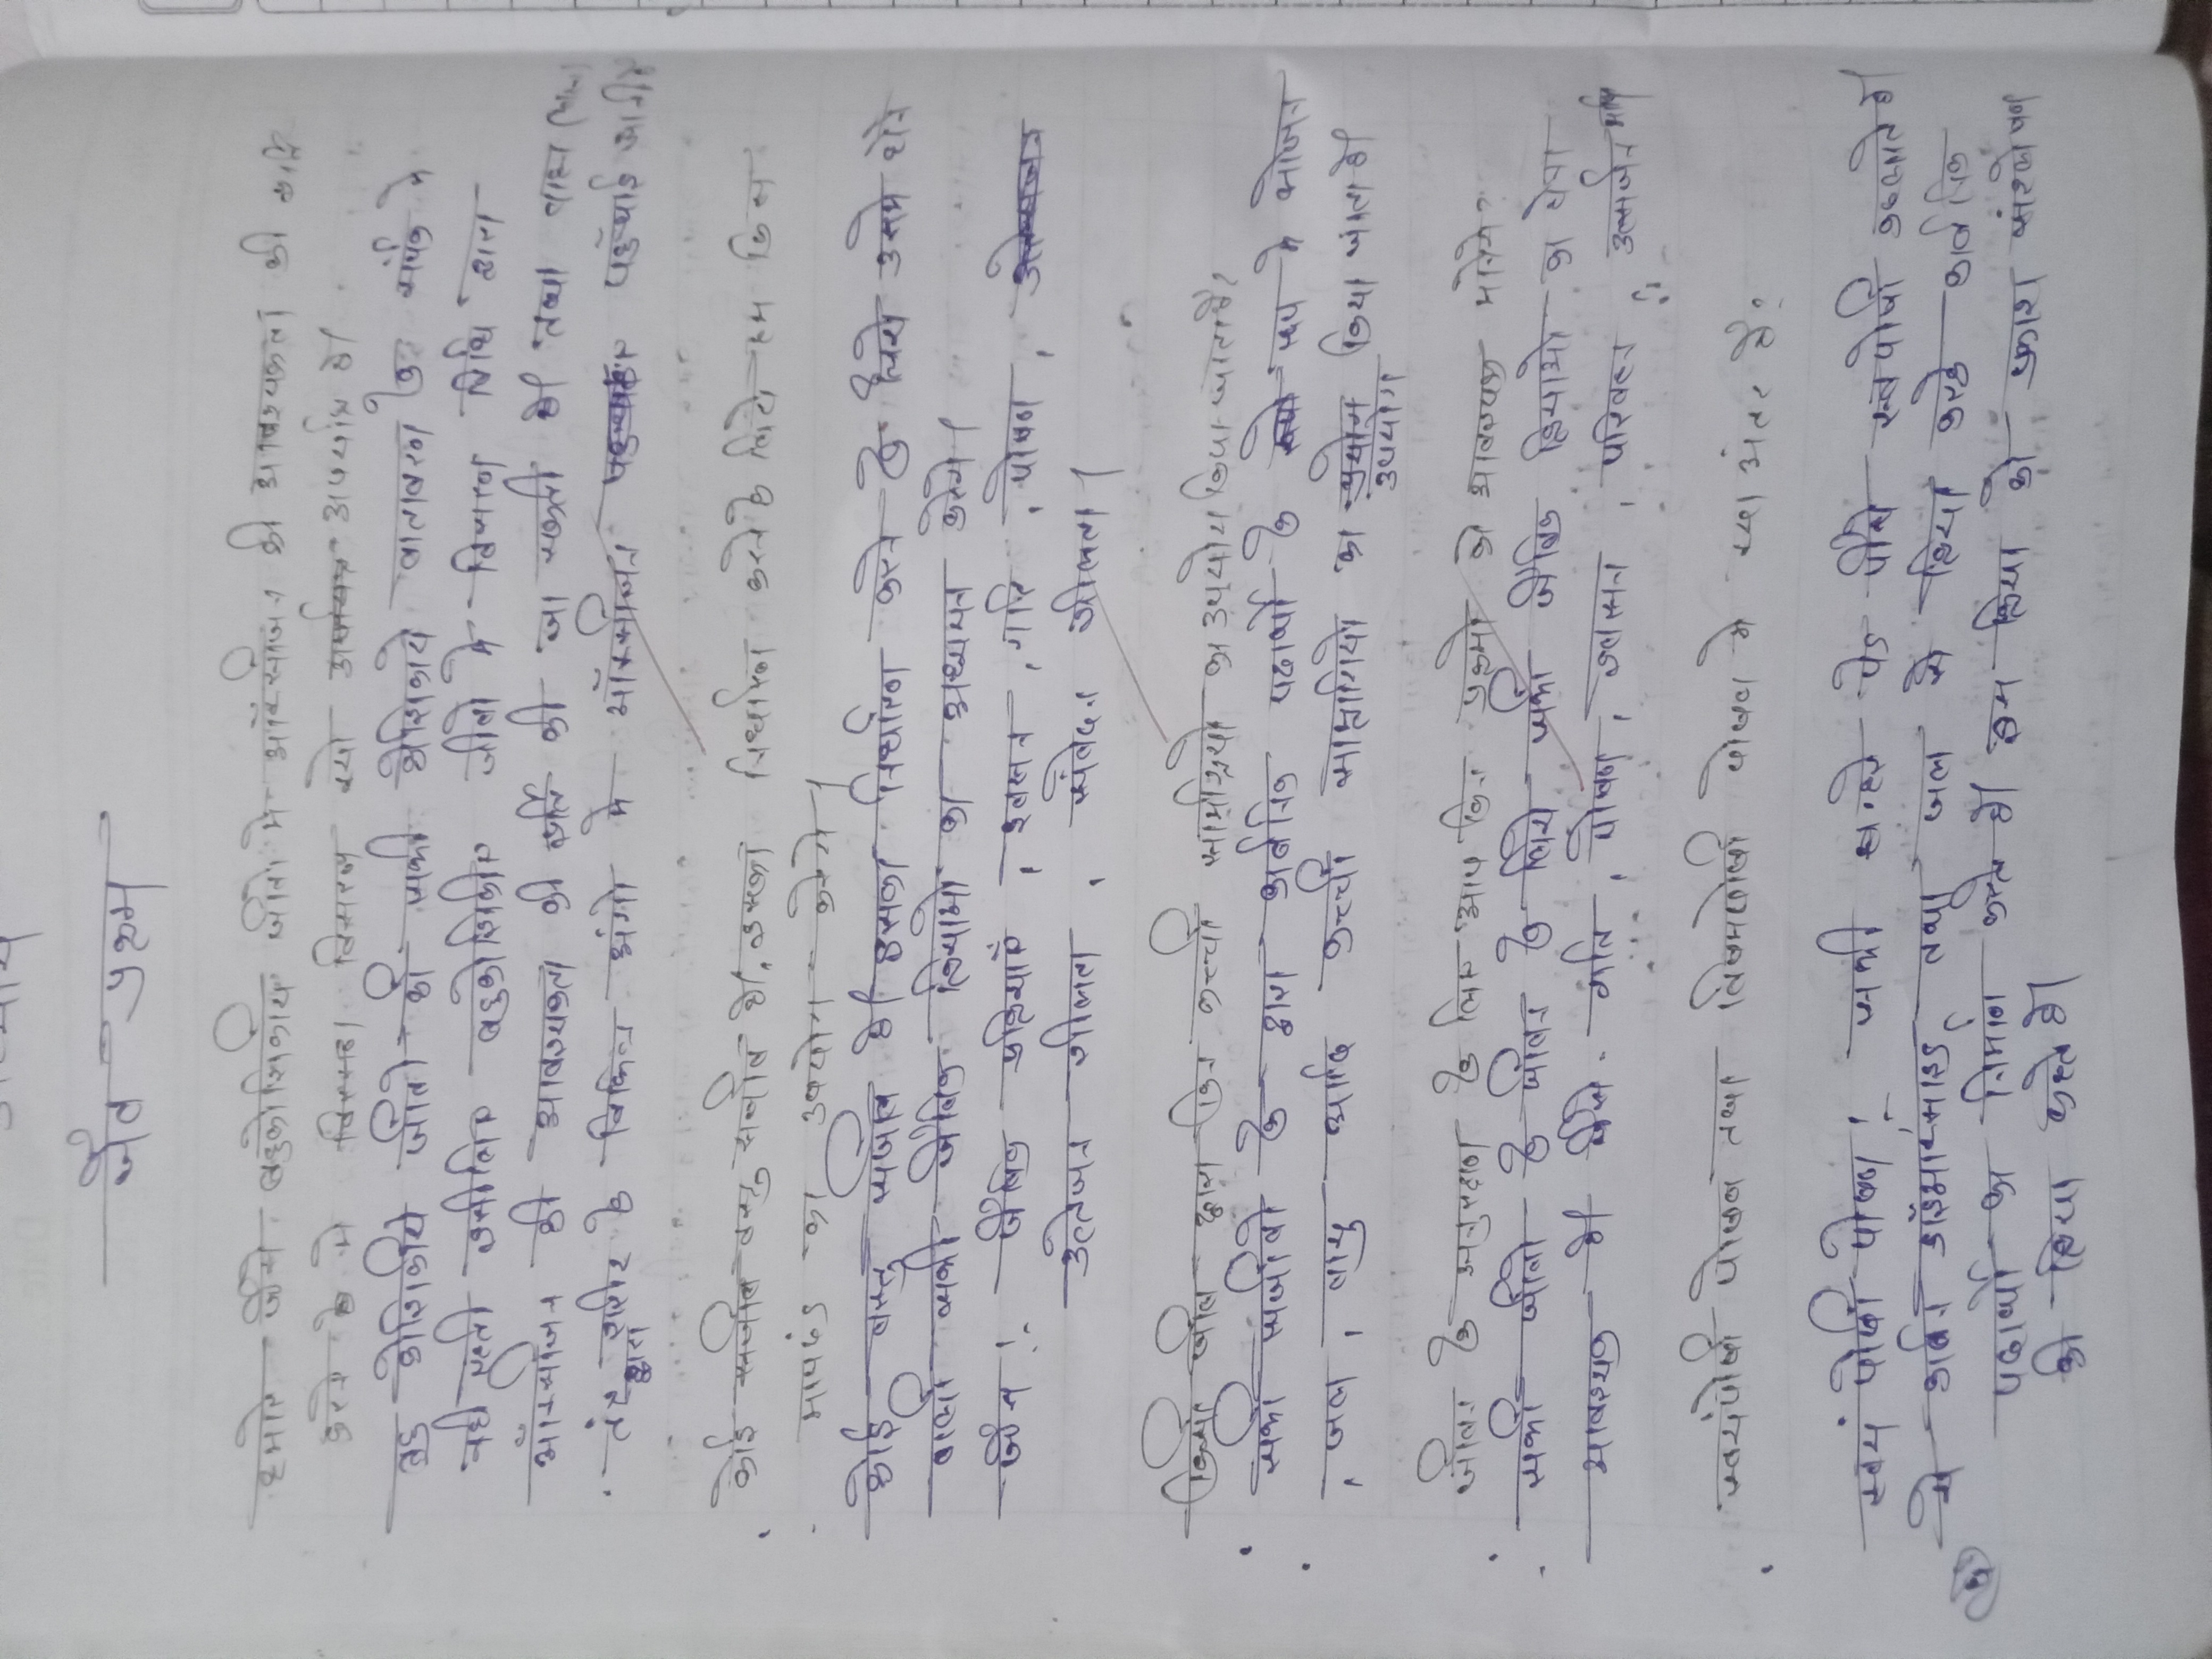 अध्याय
जैव प्रक्रम
हमारे जैसे बहुकोशिकीय जीवो मे ऑक्सीजन की आवश्यकता की पूर्ति
करने के मे विसरण क्यो अपर्याप्त है।
बहु कोशिकीये जीवो की सभी कोशिकाये वातावरण के संर्पक मे
नही रहती इसीलिए बहुकोशिकीए जीवो मे विसरण विधि द्वारा
ऑक्सीजन की आवश्यकता की पूर्ति की जा सकती है। तथा
तंत्र द्वारा शरीर के विभिन्न अंगो मे ऑक्सीजन पहुँचाई जाती है
कोई वस्तु सजीव है, इसका निर्धारण करने के लिये हम किस
मापदंड का उपयोग करेगे।
कोई वस्तु सजीव है। इसका निर्धारण करने के लिये उसमे होने
वाली सभी जैविक क्रियाओ का अध्ययन करेगे।
जैसे :- जैविक प्रक्रियाएँ , श्वसन , गति , पोषण ,
उत्तेजन शीलता , संवेदन शीलता।
किसी जीव द्वारा किन कच्ची सामग्रियो का उपयोग किया जाता है?
सभी सजीवो के द्वारा कार्बनिक पदार्थो के रूप मे भोजन
, जल , वायु आदि कच्ची सामग्रियो का उपयोग किया जाता है।
जीवन के अनुरक्षण के लिए आप किन प्रक्रमो को आवश्यक मानेगे?
सभी जीवो के जीवन के लिये सभी जैविक क्रियाओ का होना
आवश्यक है। जैसे - गति , पोषण , श्वसन , परिवहन , उत्सर्जन आदि
स्वयंपोषी पोषण तथा विषमपोषी पोषण मे क्या अंतर है?
स्वयं पोषी पोषण :- सभी हरे पेड पौधे स्वपोषी कहलाते है।
ये कार्बन डाइआक्साइड तथा जल से क्रिया करके कार्बनिक
पदार्थो का निर्माण करते है। इस क्रिया को प्रकाश संश्लेषण
की क्रिया कहते है।